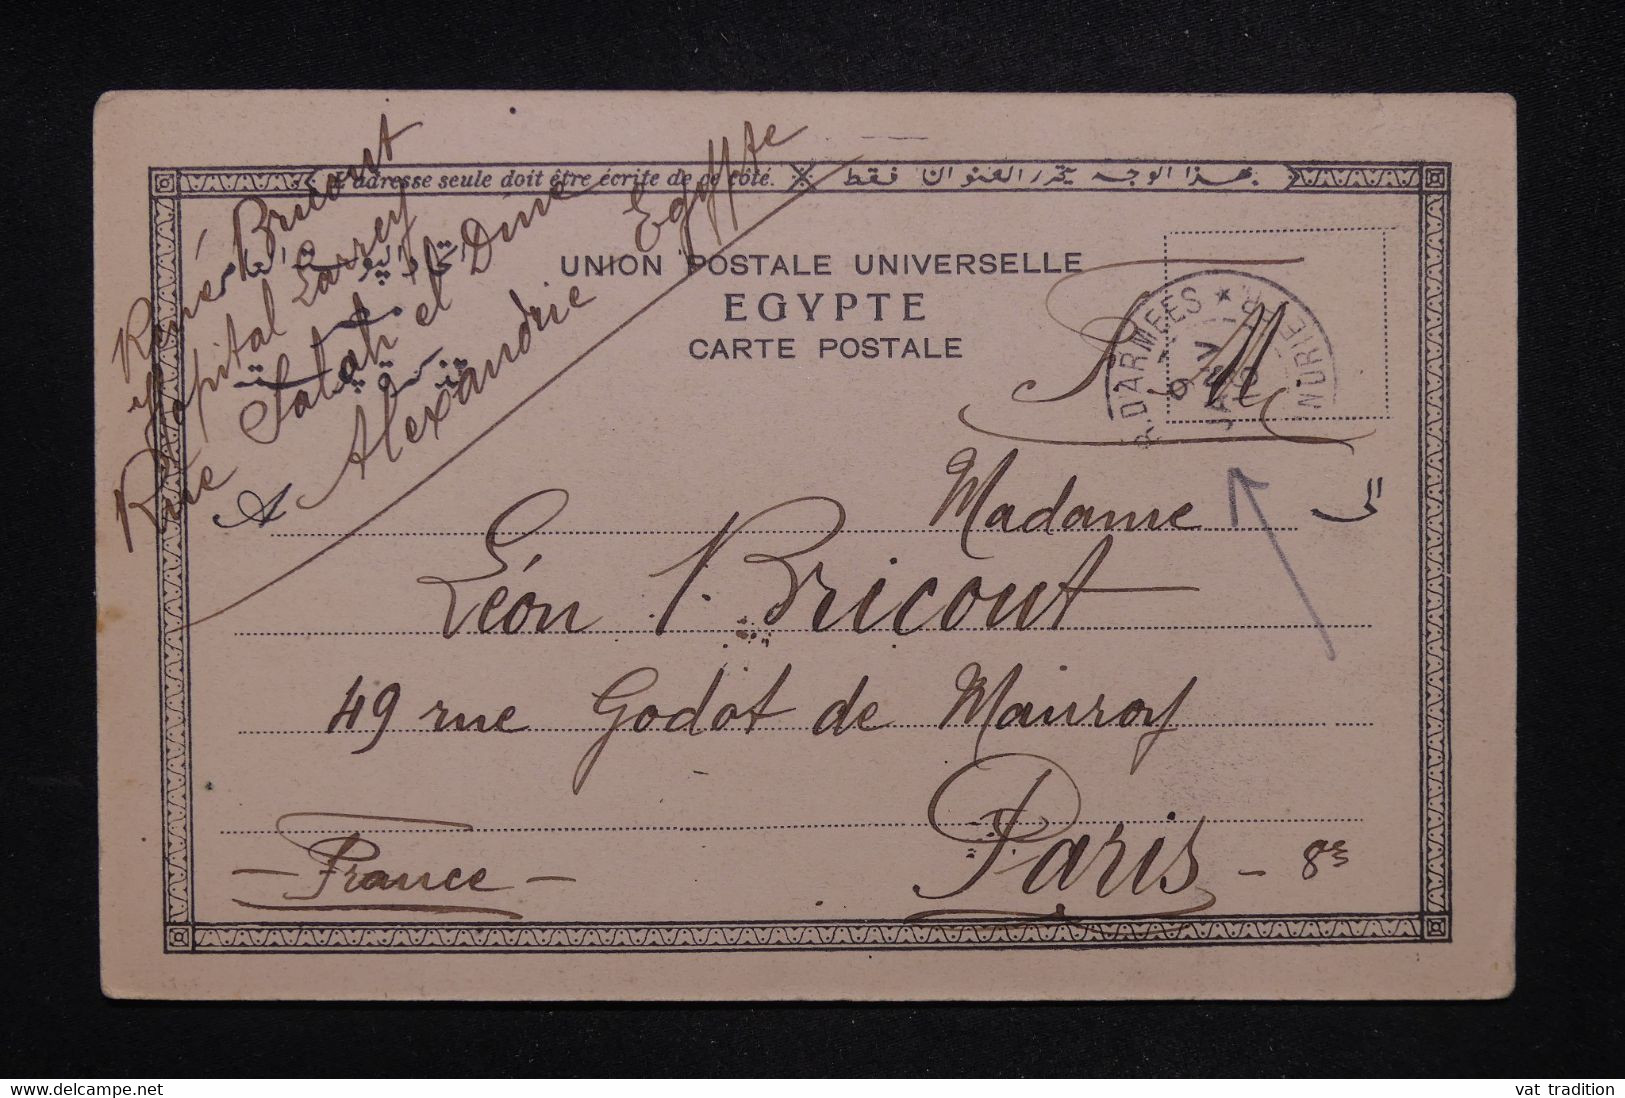 L'adresse seule doit être écrite de ce côté.
بهذا الوجه يحرر العنوان فقط
René Bricout
Hopital Larrey
Rue Salah el Dine
A Alexandrie Egypte
اتحاد البوستة العام
UNION POSTALE UNIVERSELLE
EGYPTE
CARTE POSTALE
D'ARMEES
F. M
Madame
الى
Léon Bricout
49 rue Godot de Mauroy
Paris - 8e
- France -
vat tradition
delcampe.net